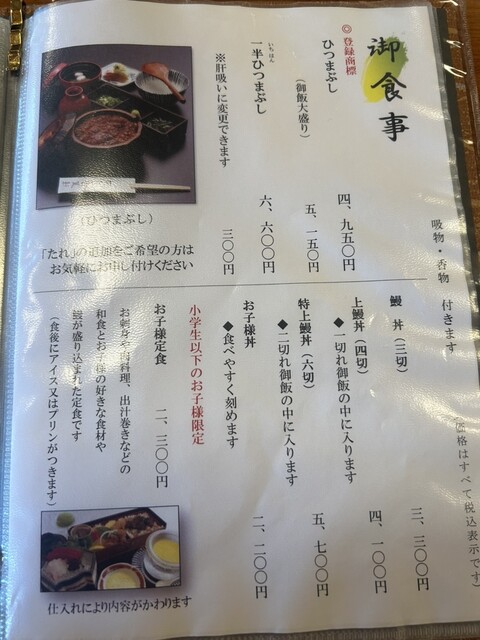 御食事
吸物・香物 付きます
(価格はすべて税込表示です)
◎登録商標
ひつまぶし 四、九五〇円
(御飯大盛り) 五、一五〇円
いちはん
一半ひつまぶし 六、六〇〇円
※肝吸いに変更できます 三〇〇円
(ひつまぶし)
「たれ」の追加をご希望の方は
お気軽にお申し付けください
鰻 丼(三切) 三、三〇〇円
上鰻丼(四切) 四、一〇〇円
◆一切れ御飯の中に入ります
特上鰻丼(六切) 五、七〇〇円
◆二切れ御飯の中に入ります
お子様丼 二、二〇〇円
◆食べやすく刻めます
小学生以下のお子様限定
お子様定食 二、三〇〇円
お刺身や肉料理、出汁巻きなどの
和食とお子様の好きな食材や
鰻が盛り込まれた定食です
(食後にアイス又はプリンがつきます)
仕入れにより内容がかわります